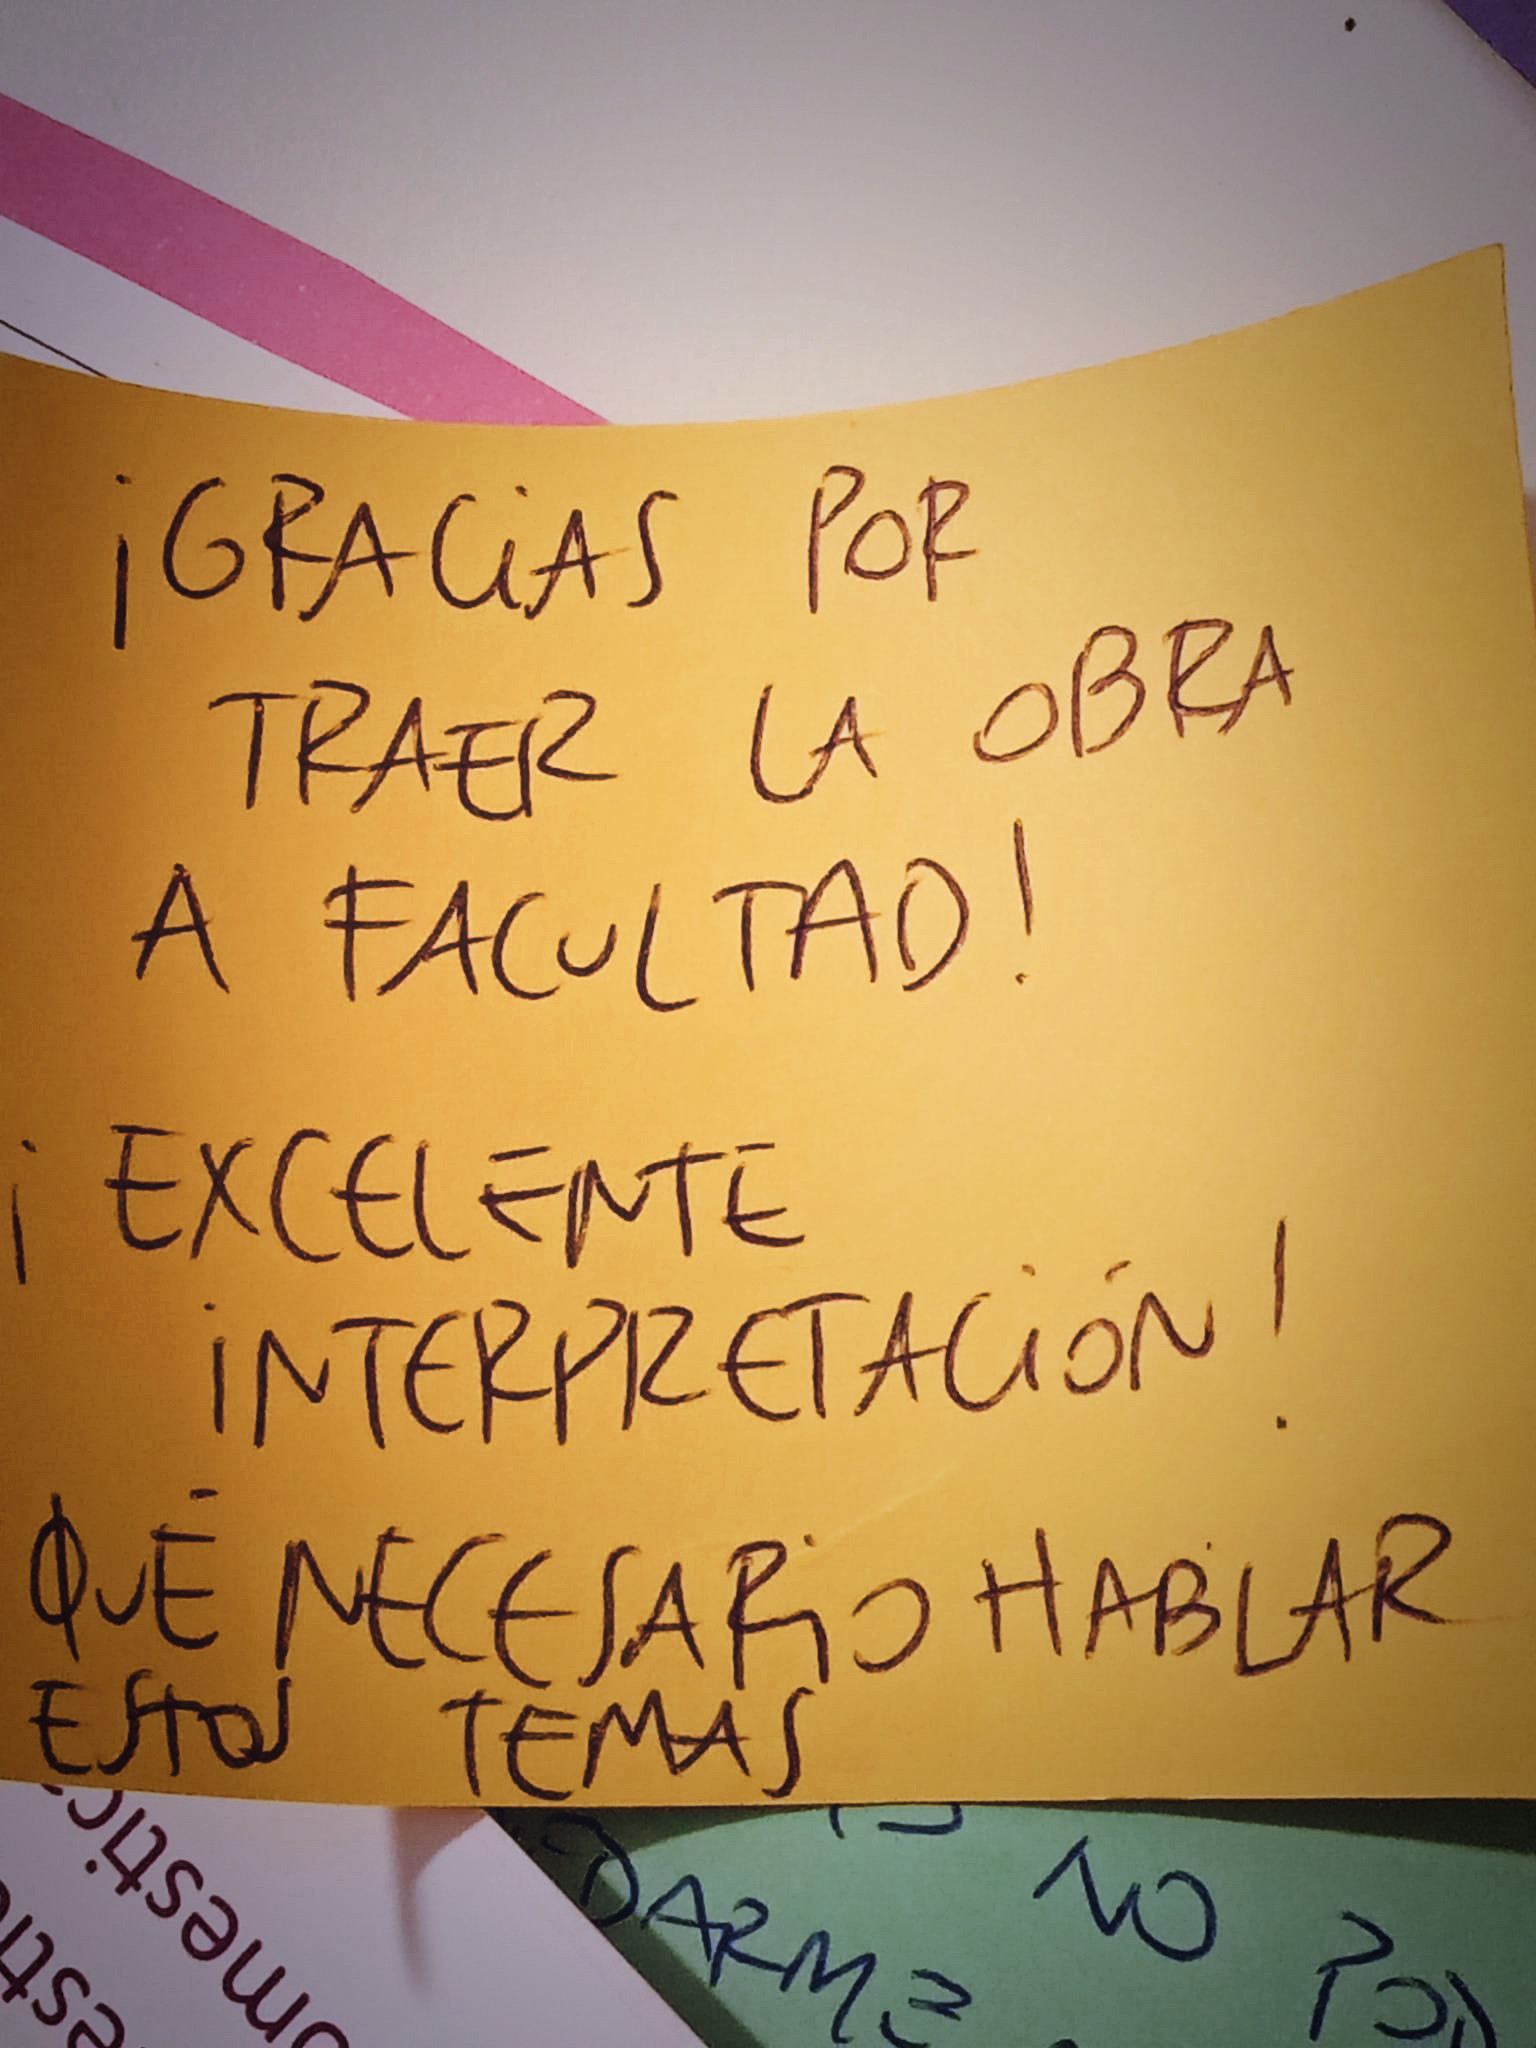 ¡GRACIAS POR
TRAER LA OBRA
A FACULTAD!
¡EXCELENTE
INTERPRETACIÓN!
QUÉ NECESARIO HABLAR
ESTOS TEMAS
NO
DARME